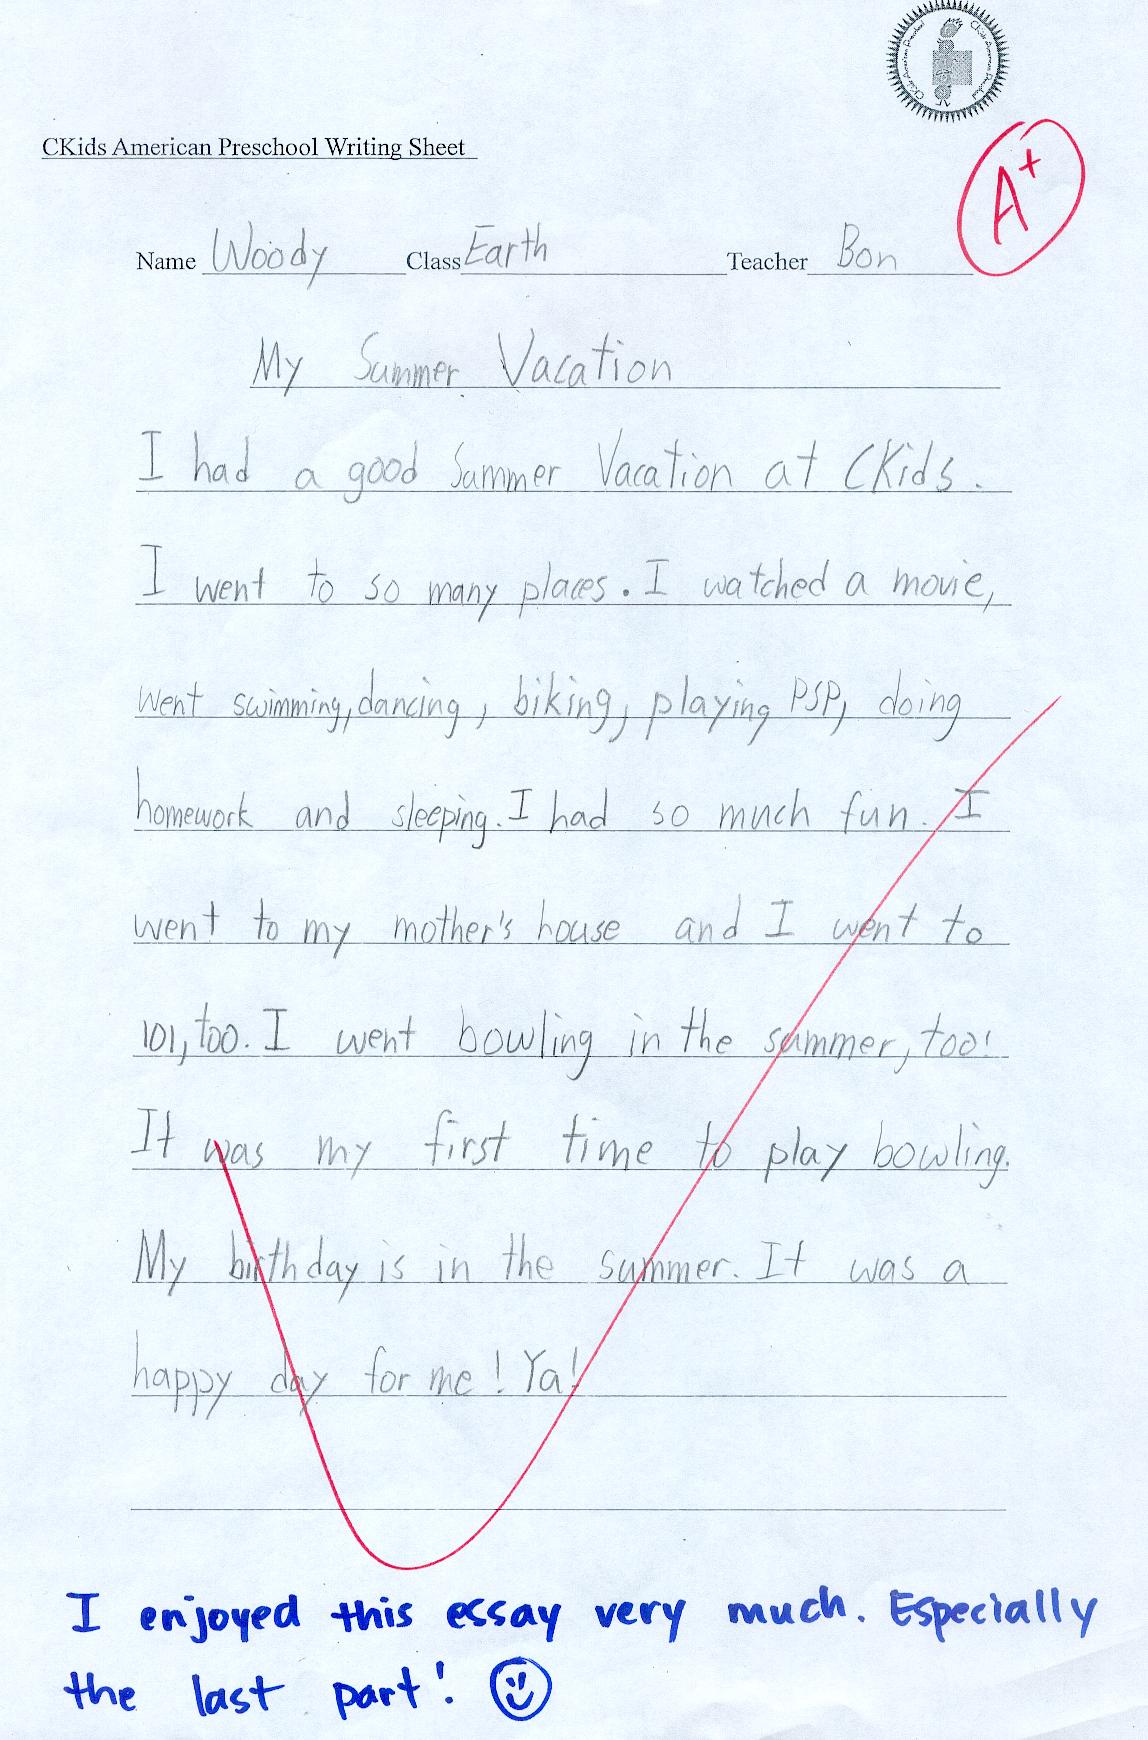 CKids American Preschool Writing Sheet
A+
Name Woody Class Earth Teacher Bon
My Summer Vacation
I had a good Summer Vacation at CKids.
I went to so many places. I watched a movie,
went swimming, dancing, biking, playing PSP, doing
homework and sleeping. I had so much fun. I
went to my mother's house and I went to
101, too. I went bowling in the summer, too!
It was my first time to play bowling.
My birthday is in the summer. It was a
happy day for me! Ya!
I enjoyed this essay very much. Especially
the last part!